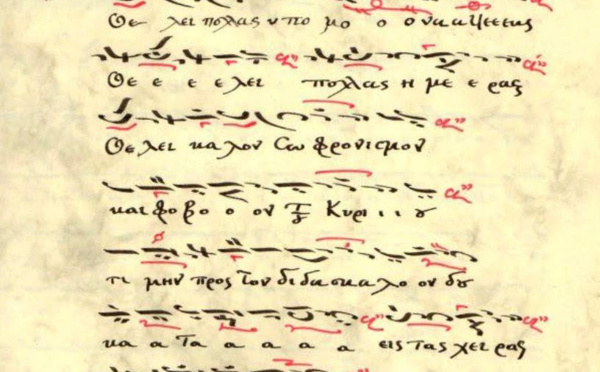 Θε λει πολλας υπο μο ο ο νακαθεεεις
Θε ε ε ε λει πολλας η με ε ρας
Θε λει κα λον Σω φρονισμον
και φο βο ο ον Κυρι ι ι ου
τι μην προς τον διδασκαλο ον δυ
κα α Τα α α α α εις τας χει ρας